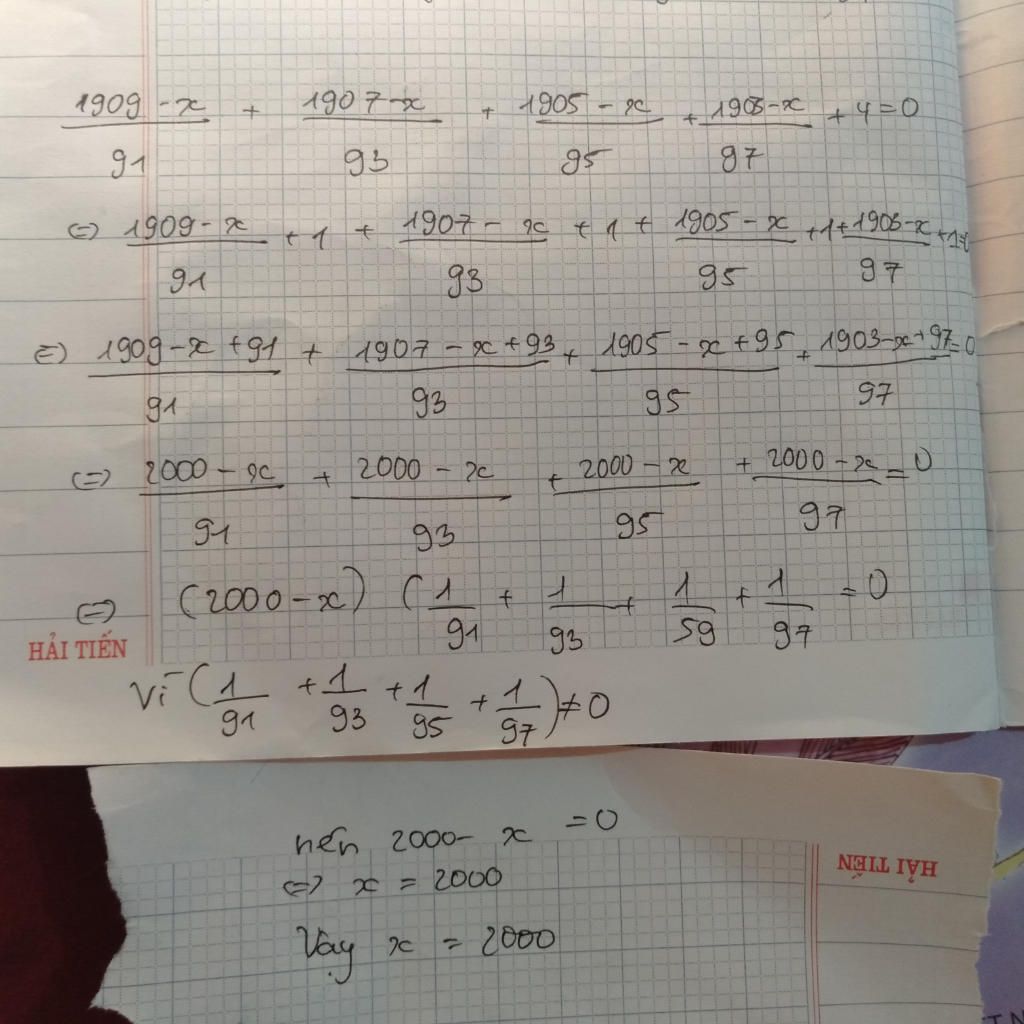 1909 - x / 91 + 1907 - x / 93 + 1905 - x / 95 + 1903 - x / 97 + 4 = 0
<=> 1909 - x / 91 + 1 + 1907 - x / 93 + 1 + 1905 - x / 95 + 1 + 1903 - x / 97 + 1 = 0
<=> 1909 - x + 91 / 91 + 1907 - x + 93 / 93 + 1905 - x + 95 / 95 + 1903 - x + 97 / 97 = 0
<=> 2000 - x / 91 + 2000 - x / 93 + 2000 - x / 95 + 2000 - x / 97 = 0
<=> (2000 - x) ( 1 / 91 + 1 / 93 + 1 / 59 + 1 / 97 = 0
HẢI TIẾN
Vì ( 1 / 91 + 1 / 93 + 1 / 95 + 1 / 97 ) ≠ 0
nến 2000 - x = 0
HẢI TIẾN
<=> x = 2000
Vậy x = 2000